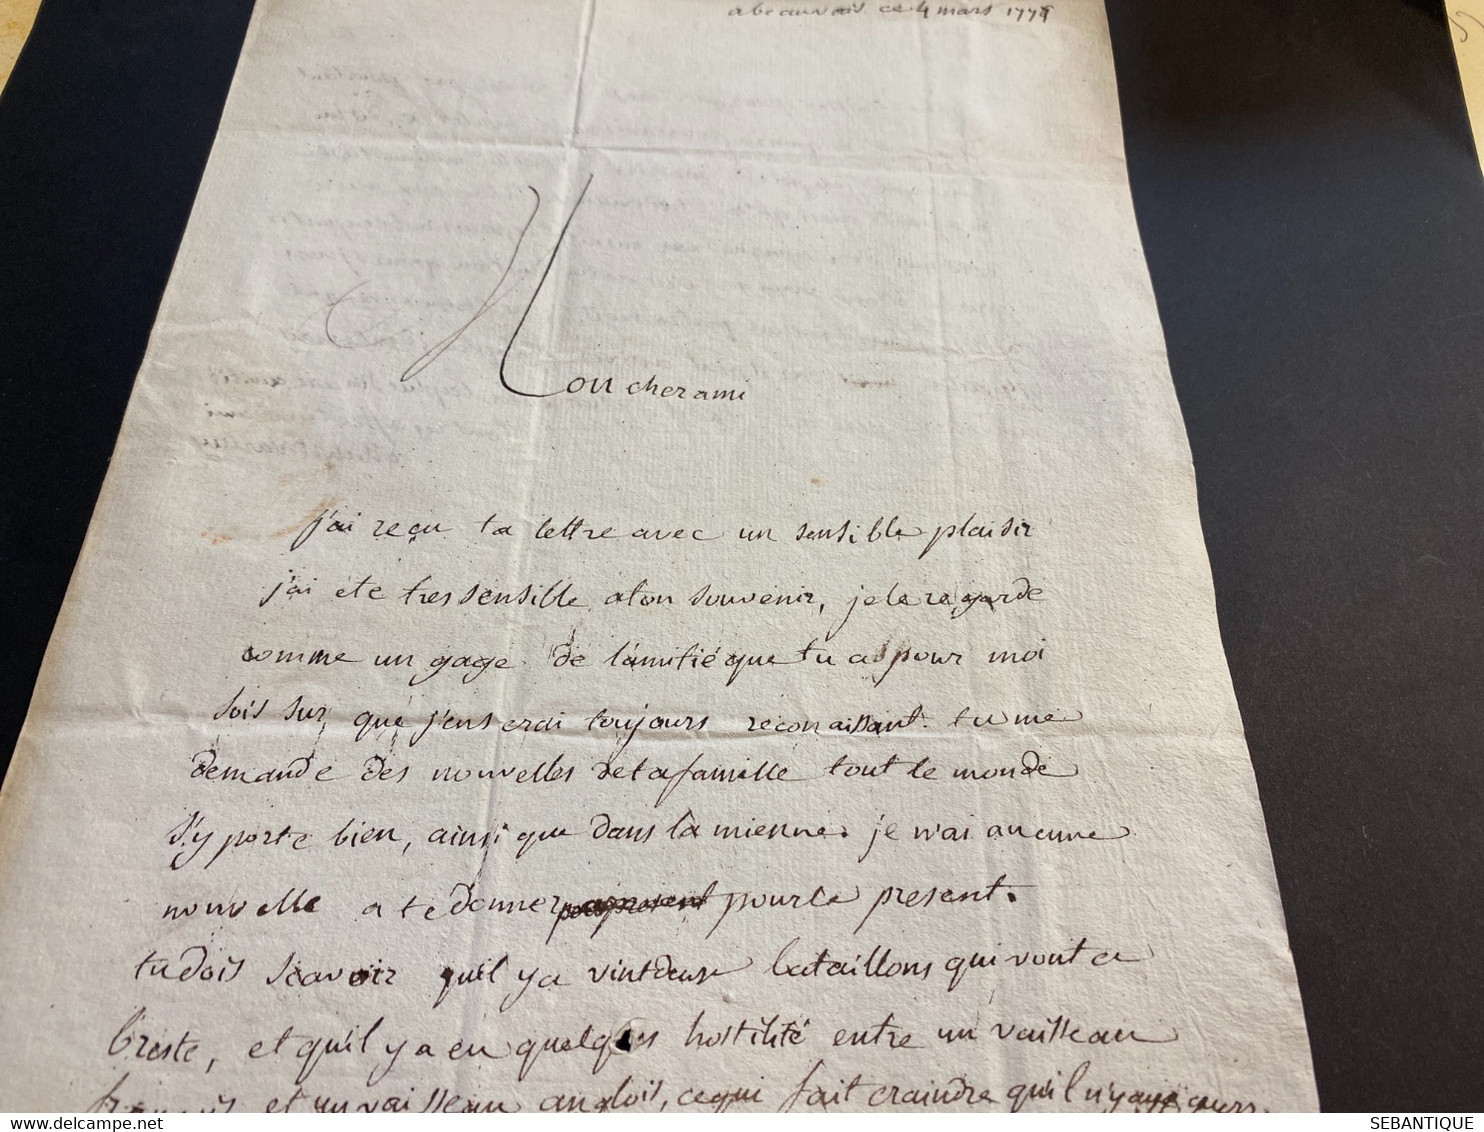 a beauvais ce 4 mars 1779
Mon cher ami
j'ai reçu ta lettre avec un sensible plaisir
j'ai ete tres sensible a ton souvenir, je le regarde
comme un gage de l'amitié que tu as pour moi
sois sur que j'en serai toujours reconaissant. tu me
demande des nouvelles de ta famille tout le monde
s'y porte bien, ainsi que dans la mienne. je n'ai aucune
nouvelle a te donner pour le present.
tu dois scavoir qu'il y a vint deux bataillons qui vont a
breste, et qu'il y a eu quelques hostilité entre un vaisseau
françois et un vaisseau anglois, ce qui fait craindre qu'il n'y aye
SEBANTIQUE